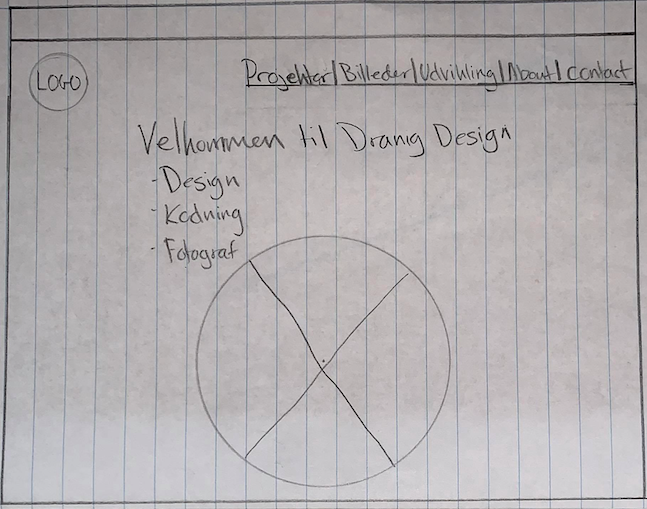 LOGO
Projektar|Billeder|Udvikling|About|Contact
Velkommen til Dranig Design
- Design
- Kodning
- Fotograf